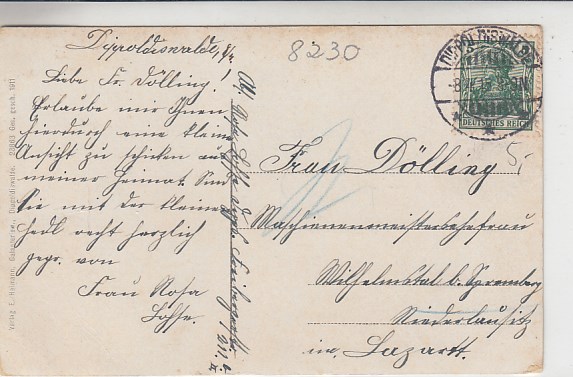 Dippoldiswalde,
Liebe Fr. Dölling!
Erlaube mir Ihnen
hierdurch eine kleine
Ansicht zu schicken aus
meiner Heimat. Sind
Sie mit der kleinen
Hedl recht herzlich
gegr. von
Frau Rosa
Lohse.
Rosa Lohse
8230
DIPPOLDISWALDE
DEUTSCHES REICH
5
Frau Dölling
Maschienenmeistersehefrau
Wilhelmstal b. Spremberg
Niederlausitz
im Lazarett.
Verlag
Ges. gesch. 1911